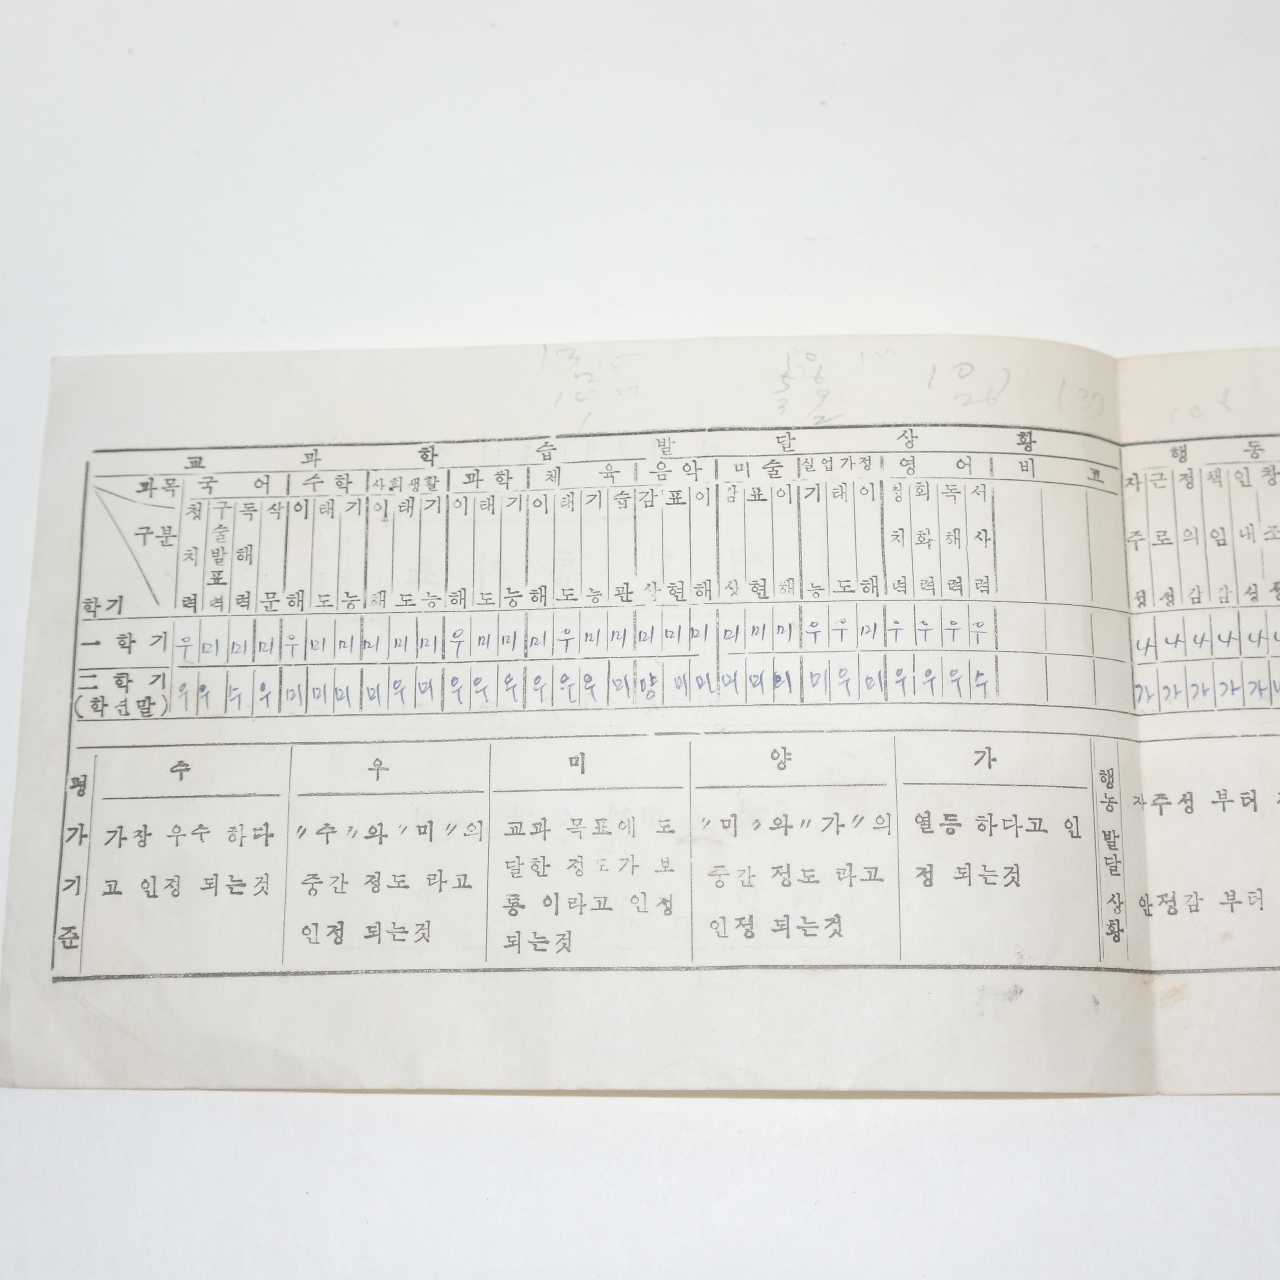 교 과 학 습 발 달 상 황
행 동
과목 국 어 수 학 사회생활 과 학 체 육 음 악 미 술 실업가정 영 어 비 고
구분
학기
청취력 구술발표력 독해력 작문 이해 태도 기능 이해 태도 기능 이해 태도 기능 이해 태도 기능 습관 감상 표현 이해 감상 표현 이해 기능 태도 이해 청취력 회화력 독해력 서사력
자주성 근로성 정의감 책임감 인내성
一 학 기 우 미 미 미 우 미 미 미 미 미 우 미 미 미 우 미 미 미 미 미 미 미 미 우 우 미 우 우 우 우
나 나 나 나 나
二 학 기
(학년말) 우 우 수 우 미 미 미 미 우 미 우 우 우 우 우 우 미 양 미 미 미 미 미 미 우 미 우 우 우 수
가 가 가 가 가
평가기준
수 우 미 양 가
가장 우수 하다
고 인정 되는것
"수"와 "미"의
중간 정도 라고
인정 되는것
교과 목표에 도
달한 정도가 보
통 이라고 인정
되는것
"미"와 "가"의
중간 정도 라고
인정 되는것
열등 하다고 인
정 되는것
행동발달상황
자주성 부터
안정감 부터